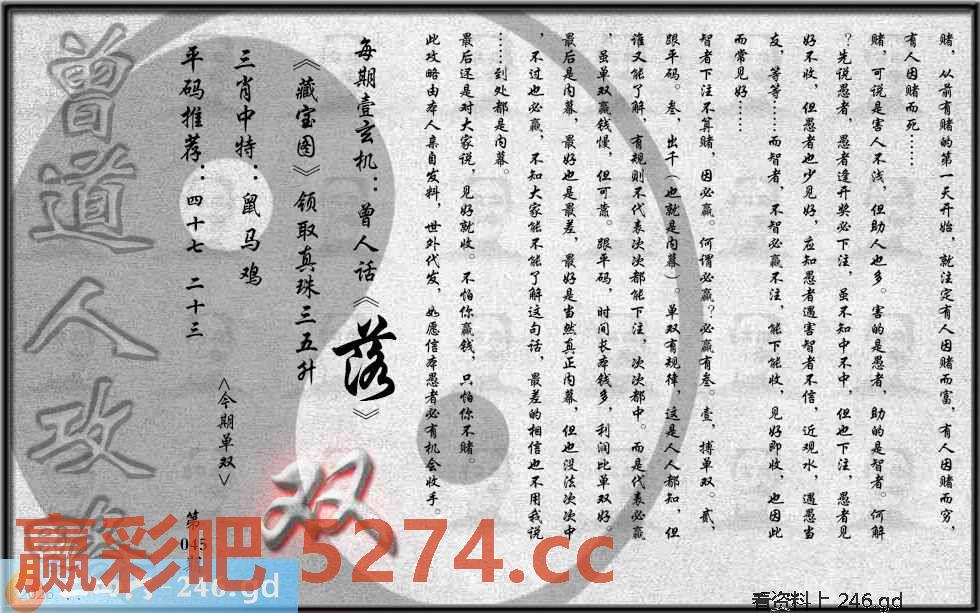 赌，从前有赌的第一天开始，就注定有人因赌而富，有人因赌而穷，
有人因赌而死……
赌，可说是害人不浅，但助人也多。害的是愚者，助的是智者。何解
？先说愚者，愚者逢开奖必下注，虽不知中不中，但也下注，愚者见
好不收，但愚者也少见好，应知愚者遇害智者不信，近观水，遇愚当
友，等等……而智者，不智必赢不注，能下能收，见好即收，也因此
而常见好……
智者下注不算赌，因必赢。何谓必赢？必赢有叁。壹，搏单双。贰，
跟平码。叁，出千（也就是内幕）。单双有规律，这是人人都知，但
谁又能了解，有规则不代表次次都能下注，次次都中。而是代表必赢
，虽单双赢钱慢，但可靠。跟平码，时间长本钱多，利润比单双好。
最后是内幕，最好也是最差，最好是当然真正内幕，但也没法次次中
，不过也必赢，不知大家能不能了解这句话，最差的相信也不用我说
……到处都是内幕。
最后还是对大家说，见好就收。不怕你赢钱，只怕你不赌。
此攻略由本人亲自发料，世外代发，如愿信本愚者必有机会收手。
每期壹玄机：曾人话《落》
《藏宝图》领取真珠三五升
三肖中特：鼠马鸡
平码推荐：四十七 二十三
<今期单双>
双
第
045
曾道人攻
赢彩吧 5274.cc
246.gd
看资料上 246.gd